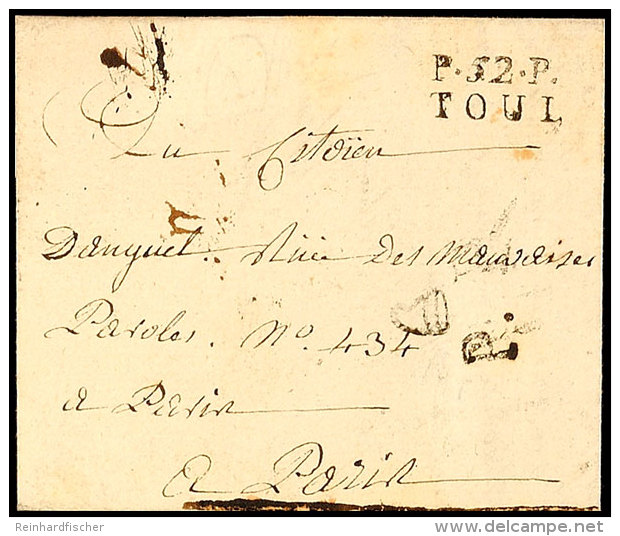 P.52.P.
TOUL
Au Citoïen
Danguel. Rue des mauvaises
Paroles. N.o 434
P.
a Paris
a Paris
Reinhardfischer
delcampe.net